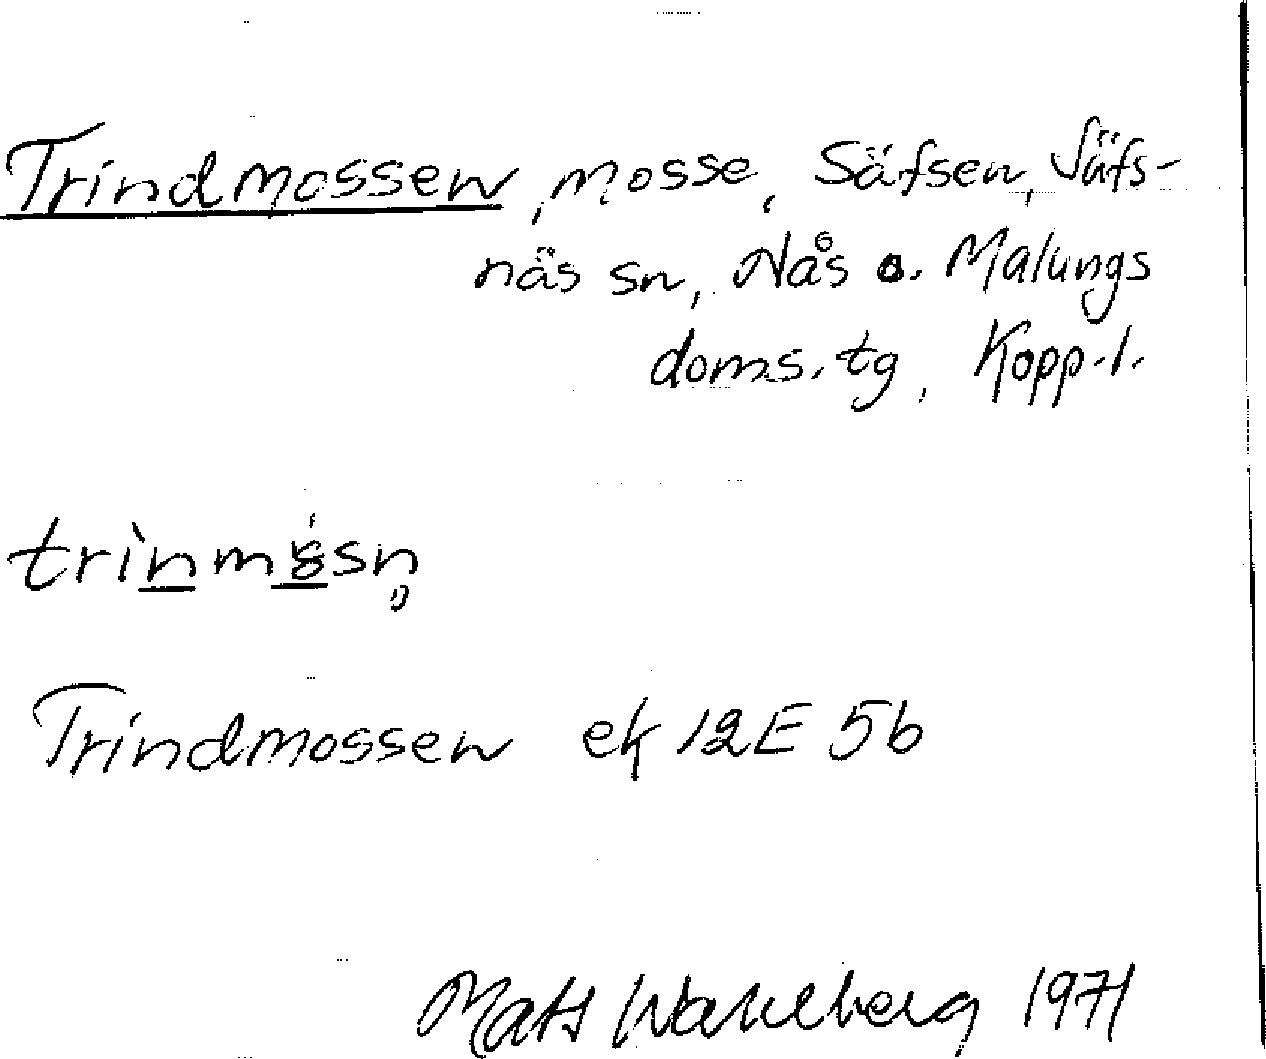 Trindmossen, mosse, Säfsen, Säfs-
näs sn, Nås o. Malungs
doms. tg, Kopp. l.
Trindmossen ek 12E 5b
Mats Wahlberg 1971